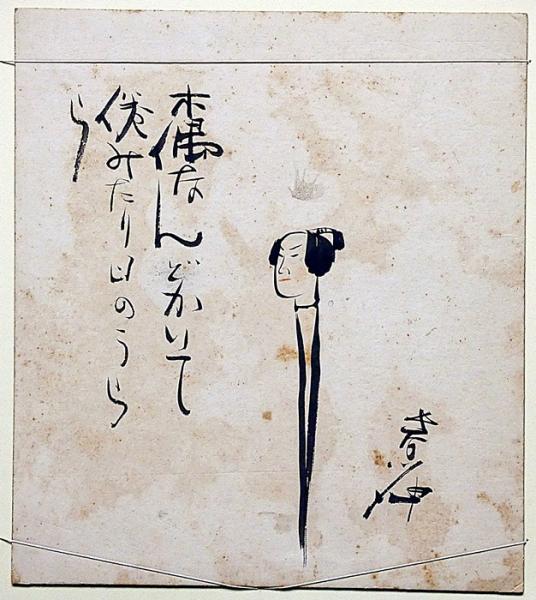 木偶なんどかいて
倦みたり日のうら
ら